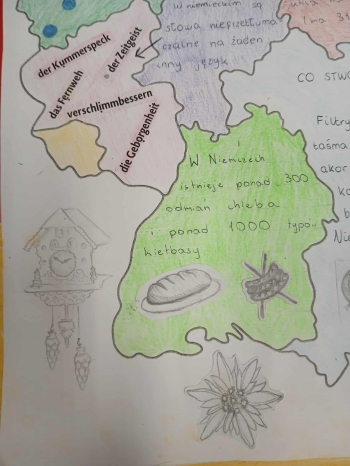 W niemieckim są
słowa nieprzetłuma
czalne na żaden
inny język
der Kummerspeck
der Zeitgeist
das Fernweh
verschlimmbessern
die Geborgenheit
CO STWO
Filtry
taśma
akor
Nie
W Niemczech
istnieje ponad 300
odmian chleba
i ponad 1000 typów
kiełbasy